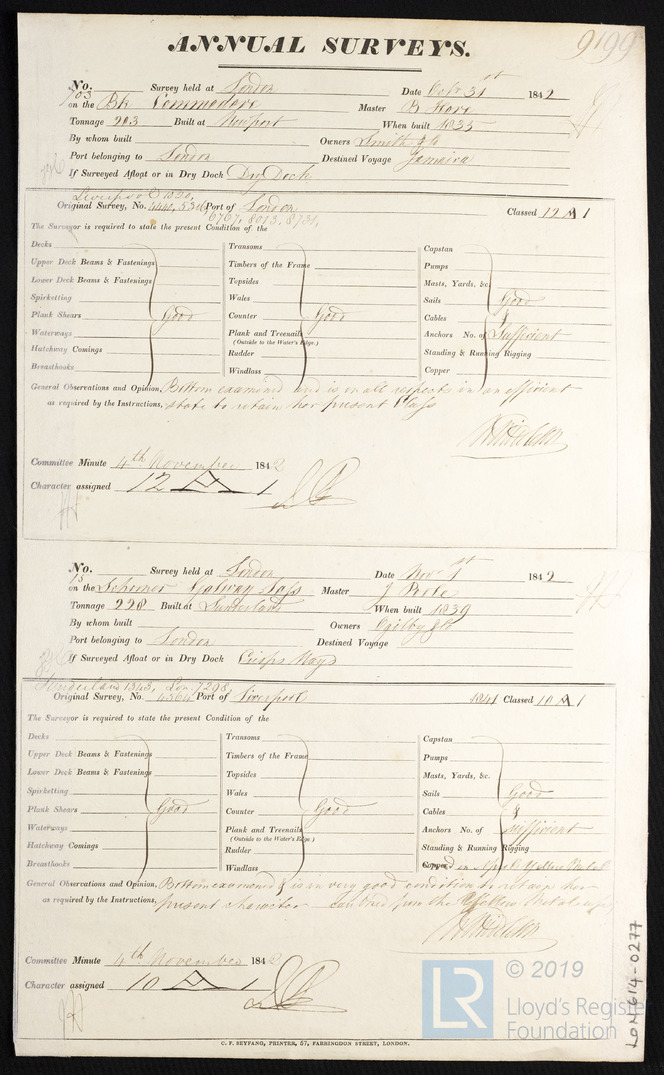 9199
ANNUAL SURVEYS.
No. 703 Survey held at London Date Octr 31st 1842
on the Bk Commodore Master B Hare
Tonnage 203 Built at Newport When built 1835
By whom built Owners Smith & Co
Port belonging to London Destined Voyage Jamaica
If Surveyed Afloat or in Dry Dock Dry Dock
Liverpool
Original Survey, No. Port of London Classed 12 A 1
6767, 8013,
The Surveyor is required to state the present Condition of the
Decks Transoms Capstan
Upper Deck Beams & Fastenings Timbers of the Frame Pumps
Lower Deck Beams & Fastenings Topsides Masts, Yards, &c.
Spirketting Wales Sails Good
Plank Shears Good Counter Good Cables &
Waterways Plank and Treenails Anchors No. of Sufficient
(Outside to the Water's Edge.)
Hatchway Comings Rudder Standing & Running Rigging
Breasthooks Windlass Copper
General Observations and Opinion, Bottom examined and is in all respects in an efficient
as required by the Instructions, state to retain her present Class
Committee Minute 4th November 1842
Character assigned 12 A 1
No. 15 Survey held at London Date Novr 1st 1842
on the Schooner Galway Lass Master J Poole
Tonnage 228 Built at Sunderland When built 1839
By whom built Owners Ogilby & Co
Port belonging to London Destined Voyage
If Surveyed Afloat or in Dry Dock Crisps Ways
Sunderland 1343, Lon 7298
Original Survey, No. 4364 Port of Liverpool 1841 Classed 10 A 1
The Surveyor is required to state the present Condition of the
Decks Transoms Capstan
Upper Deck Beams & Fastenings Timbers of the Frame Pumps
Lower Deck Beams & Fastenings Topsides Masts, Yards, &c.
Spirketting Wales Sails Good
Plank Shears Good Counter Good Cables &
Waterways Plank and Treenails Anchors No. of Sufficient
(Outside to the Water's Edge)
Hatchway Comings Rudder Standing & Running Rigging
Breasthooks Windlass Copper Yellow Metal
General Observations and Opinion, Bottom examined & is in very good condition to retain her
as required by the Instructions, present character the Yellow Metal
Committee Minute 4th November 1842
Character assigned 10 A 1
C. F. SEYFANG, PRINTER, 57, FARRINGDON STREET, LONDON.
LR © 2019
Lloyd's Register
Foundation
LON 614-0277